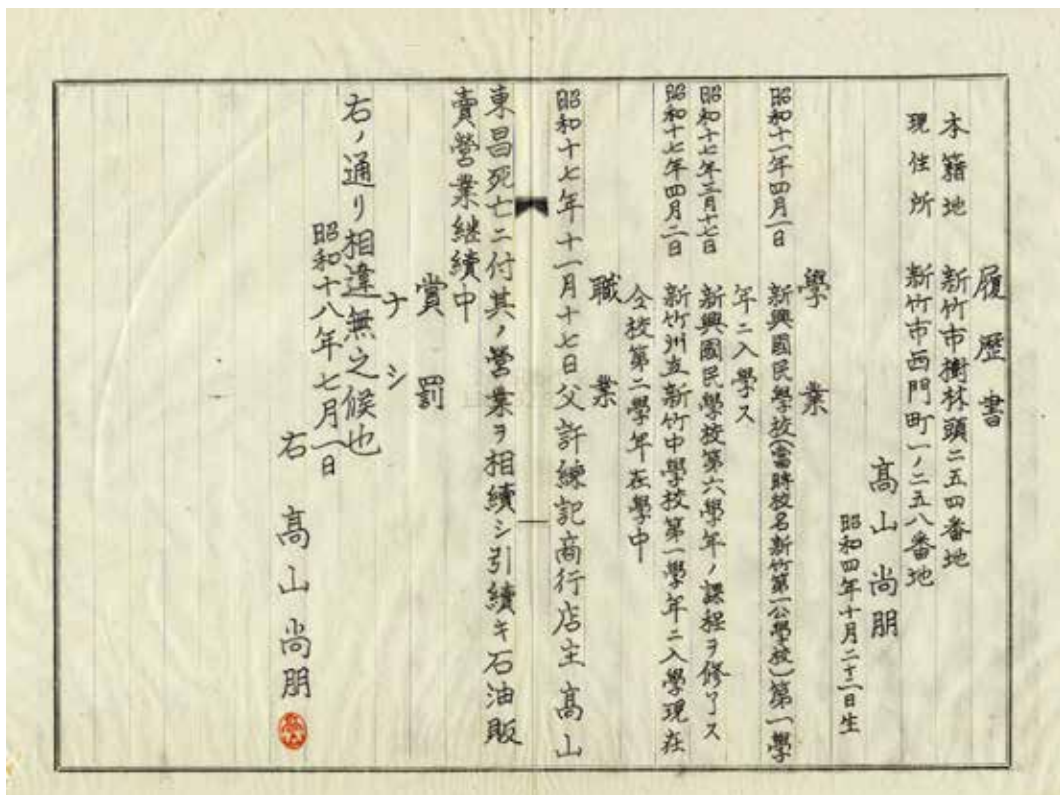 履歷書
本籍地 新竹市樹林頭二五四番地
現住所 新竹市西門町一ノ二五八番地
高山尚朋
昭和四年十月二十二日生
學業
昭和十一年四月一日 新興國民學校(當時校名新竹第一公學校)第一學
年ニ入學ス
昭和十七年三月十七日 新興國民學校第六學年ノ課程ヲ修了ス
昭和十七年四月二日 新竹州立新竹中學校第一學年ニ入學現在
仝校第二學年在學中
職業
昭和十七年十一月十七日父許練記商行店主高山
東昌死亡ニ付其ノ營業ヲ相續シ引續キ石油販
賣營業継續中
賞罰
ナシ
右ノ通リ相違無之候也
昭和十八年七月一日
右 高山尚朋